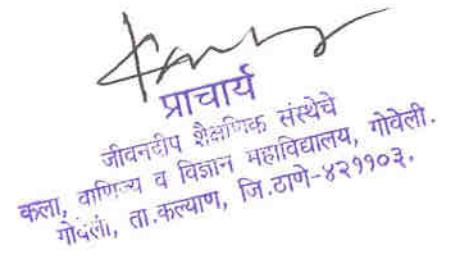 प्राचार्य
जीवनदीप शैक्षणिक संस्थेचे
कला, वाणिज्य व विज्ञान महाविद्यालय, गोवेली.
गोवेली, ता.कल्याण, जि.ठाणे-४२११०३.